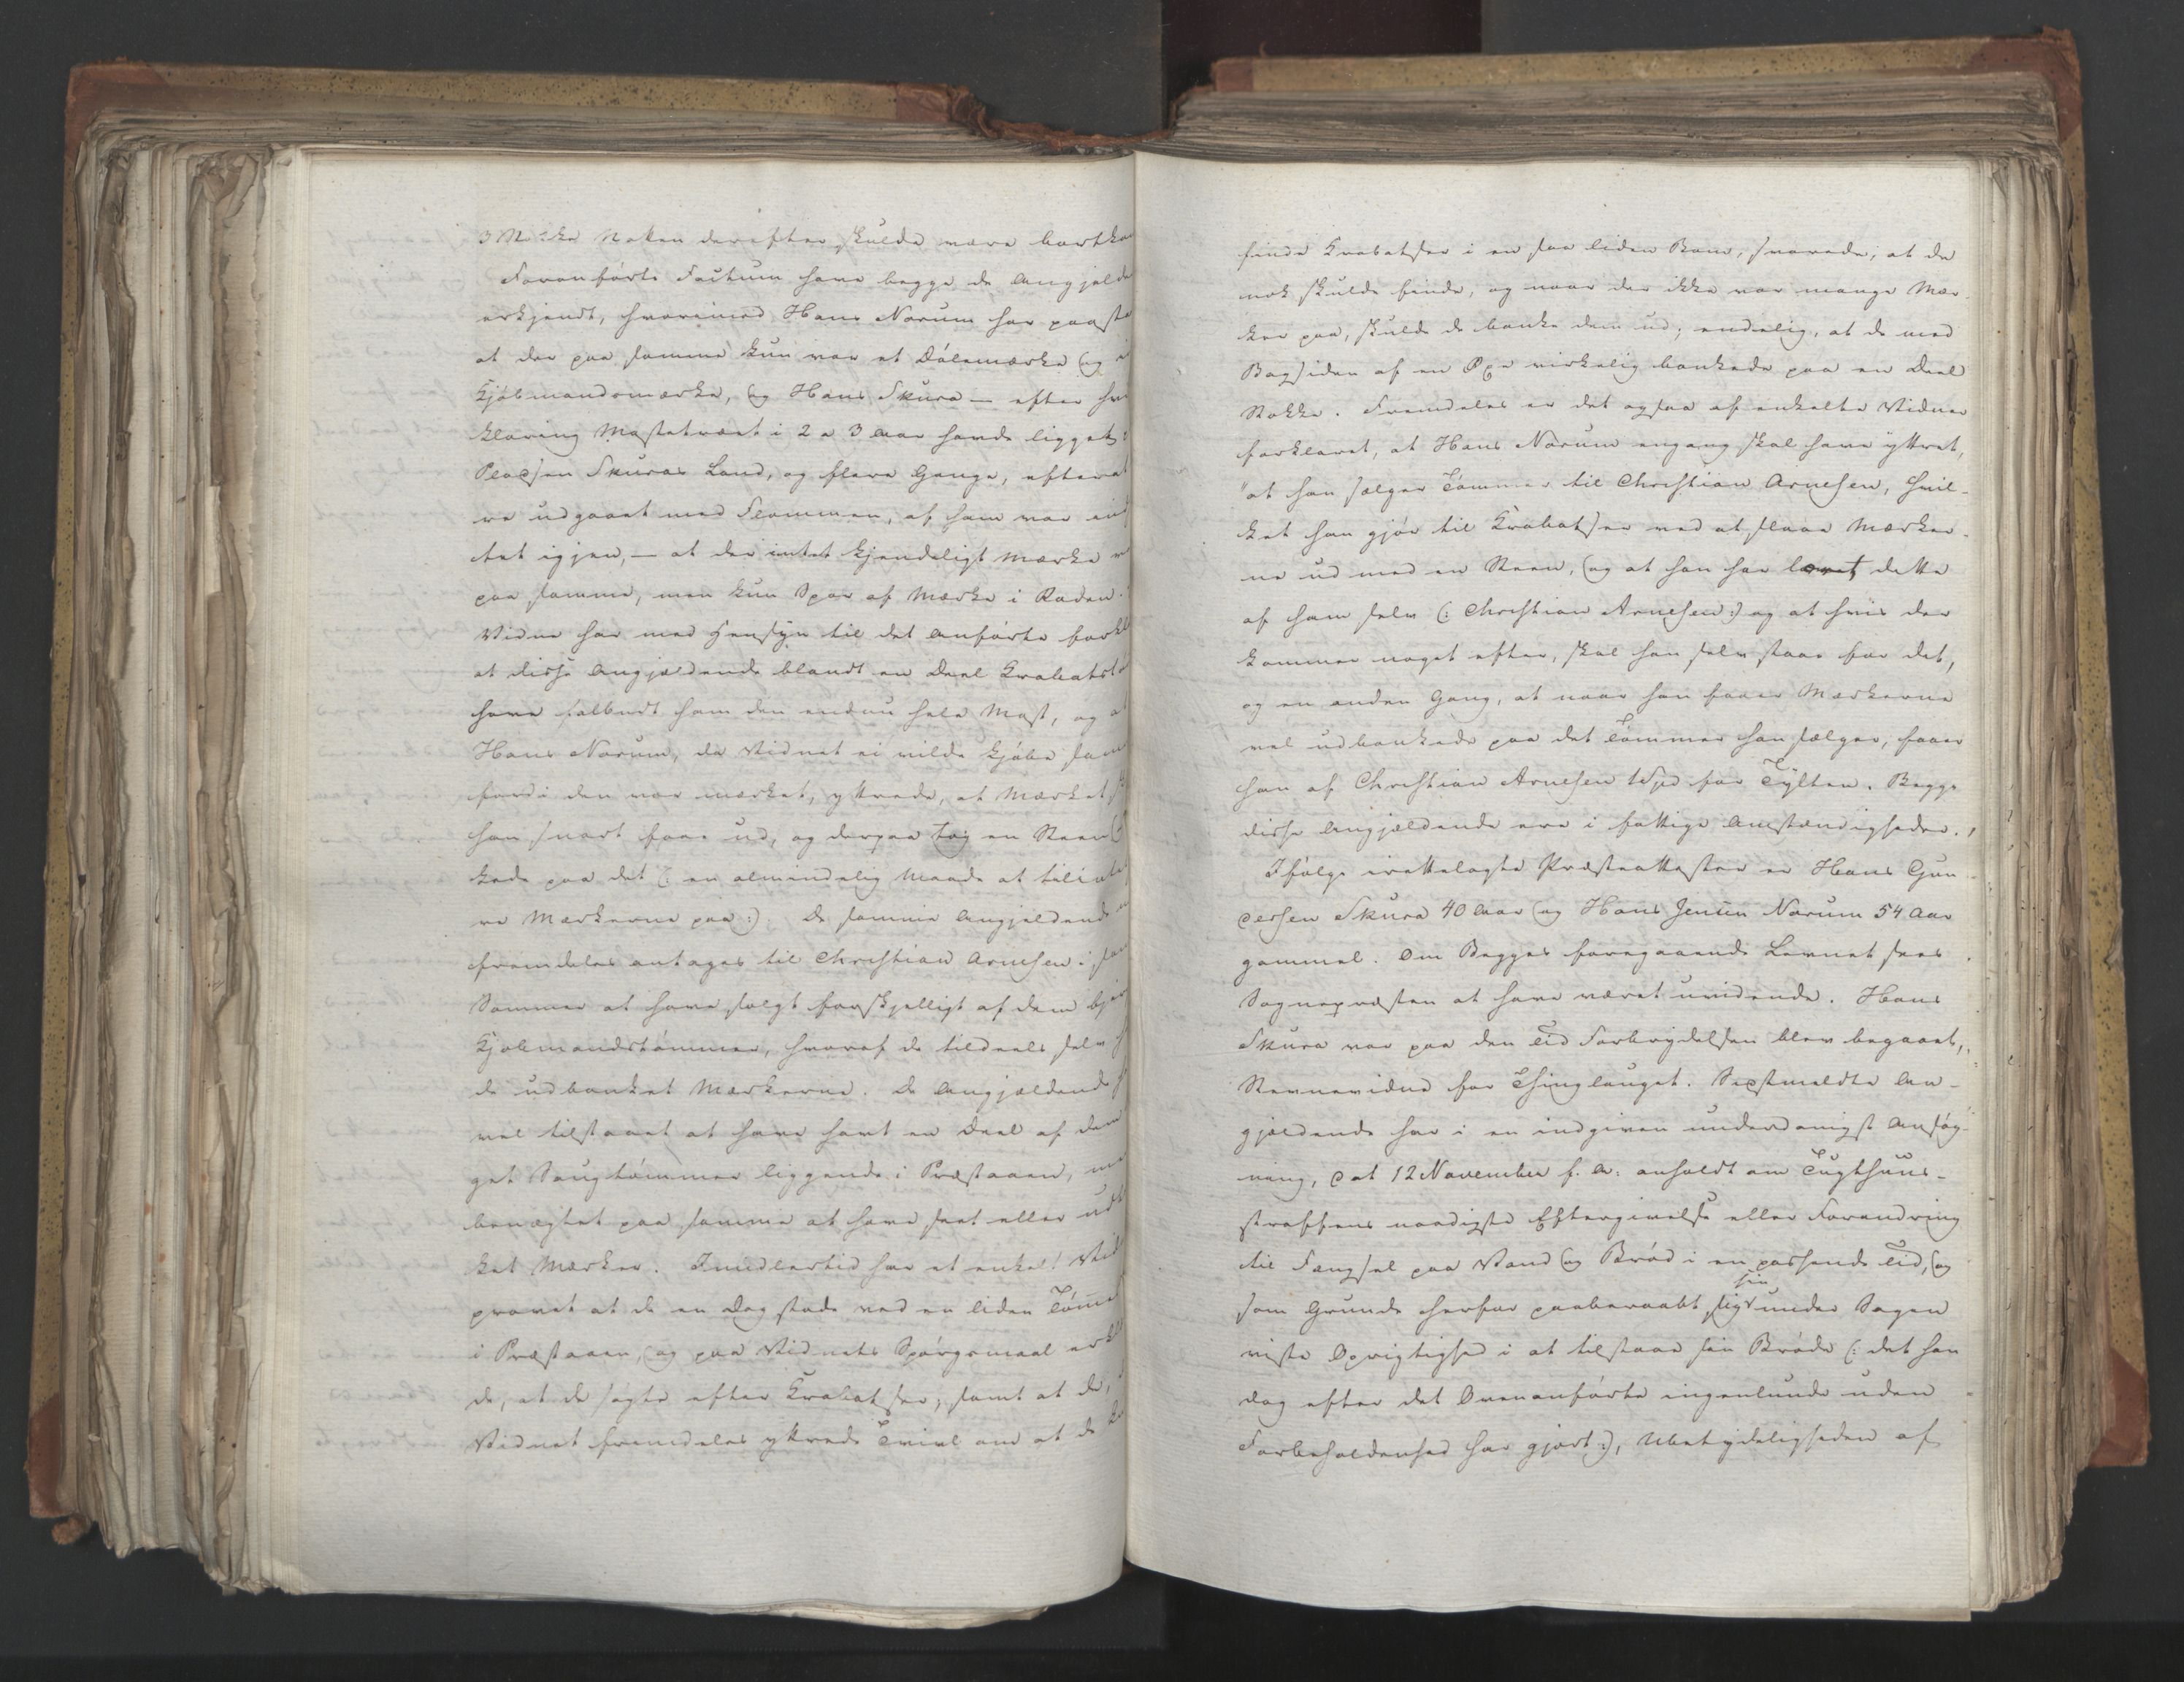 3 Stokke Stokken derefter skulde være bortkom
Foranførte Factum have begge de Angjelde
erkjendt, hvorimod Hans Norum har paasta
at der paa samme kun var et Dølemærke og
Kjøbmandsmærke, og Hans Skura – efter hvi
klaring Mastetræet i 2 a 3 Aar havde ligget
Pladsen Skuras Land, og flere Gange, efterat
re udgaaet med Flommen, af ham var ind
tet igjen, – at der intet kjendeligt Mærke
paa samme, men kun Spor af Mærke i Roden.
Vidne har med Hensyn til det Anførte forkl
at disse Angjældende blandt en Deel Krabats
have falbudt ham den endnu hele Mast, og at
Hans Norum, da Vidnet ei vilde kjøbe sam
fordi den var mærket, yttrede, at Mærket
han snart faae ud, og derpaa tog en Steen
kede paa det (: en almindelig Maade at
re Mærkerne paa :) De samme Angjeldende
fremdeles antages til Christian Arnesen i
Sommer at have solgt forskjelligt af dem
Kjøbmandstømmer, hvoraf de tildeels selv
de udbanket Mærkerne. De Angjældende
vel tilstaaet at have havt en Deel af
get Saugtømmer liggende i Præstaaen, me
benægtet paa samme at have seet eller
ket Mærker. Imidlertid har et enkelt Vid
provet at de en Dag stode ved en liden Tømme
i Præstaaen, og paa Vidnets Spørgsmaal erkl
de, at de søgte efter Krabatser, samt at de,
Vidnet fremdeles yttrede Tvivl om at de
finde Krabatser i en saa liden Bom, svarede, at de
nok skulde finde, og naar der ikke var mange Mær-
ker paa, skulde de banke dem ud; endelig, at de med
Bagsiden af en Øxe virkelig bankede paa en Deel
Stokke. Fremdeles er det ogsaa af enkelte Vidner
forklaret, at Hans Norum engang skal have yttret,
"at han sælger Tømmer til Christian Arnesen, hvil-
ket han gjør til Krabatser ved at slaae Mærker-
ne ud med en Steen, og at han har lært dette
af ham selv (: Christian Arnesen :) og at hvis der
kommer noget efter, skal han selv staae for det,
og en anden Gang, at naar han faaer Mærkerne
vel udbankede paa det Tømmer han sælger, faaer
han af Christian Arnesen 1 Spd for Tylten. Begge
disse Angjældende ere i fattige Omstændigheder.
Ifølge irettelagte Præsteattester er Hans Gun-
dersen Skura 40 Aar og Hans Jensen Norum 54 Aar
gammel. Om Begges foregaaende Levnet sees
Sognepræsten at have været uvidende. Hans
Skura var paa den Tid Forbrydelsen blev begaaet,
Stevnevidne for Thinglauget. Sidstmeldte An-
gjældende har i en indgiven underdanigst Ansøg-
ning, dat 12 November f. A. anholdt om Tugthuus-
straffens naadigste Eftergivelse eller Forandring
til Fængsel paa Vand og Brød i en passende Tid, og
som Grunde herfor paaberaabt sig sin under Sagen
viste Oprigtighed i at tilstaae sin Brøde (: det han
dog efter det Ovenanførte ingenlunde uden
Forbeholdenhed har gjort :), Ubetydeligheden af